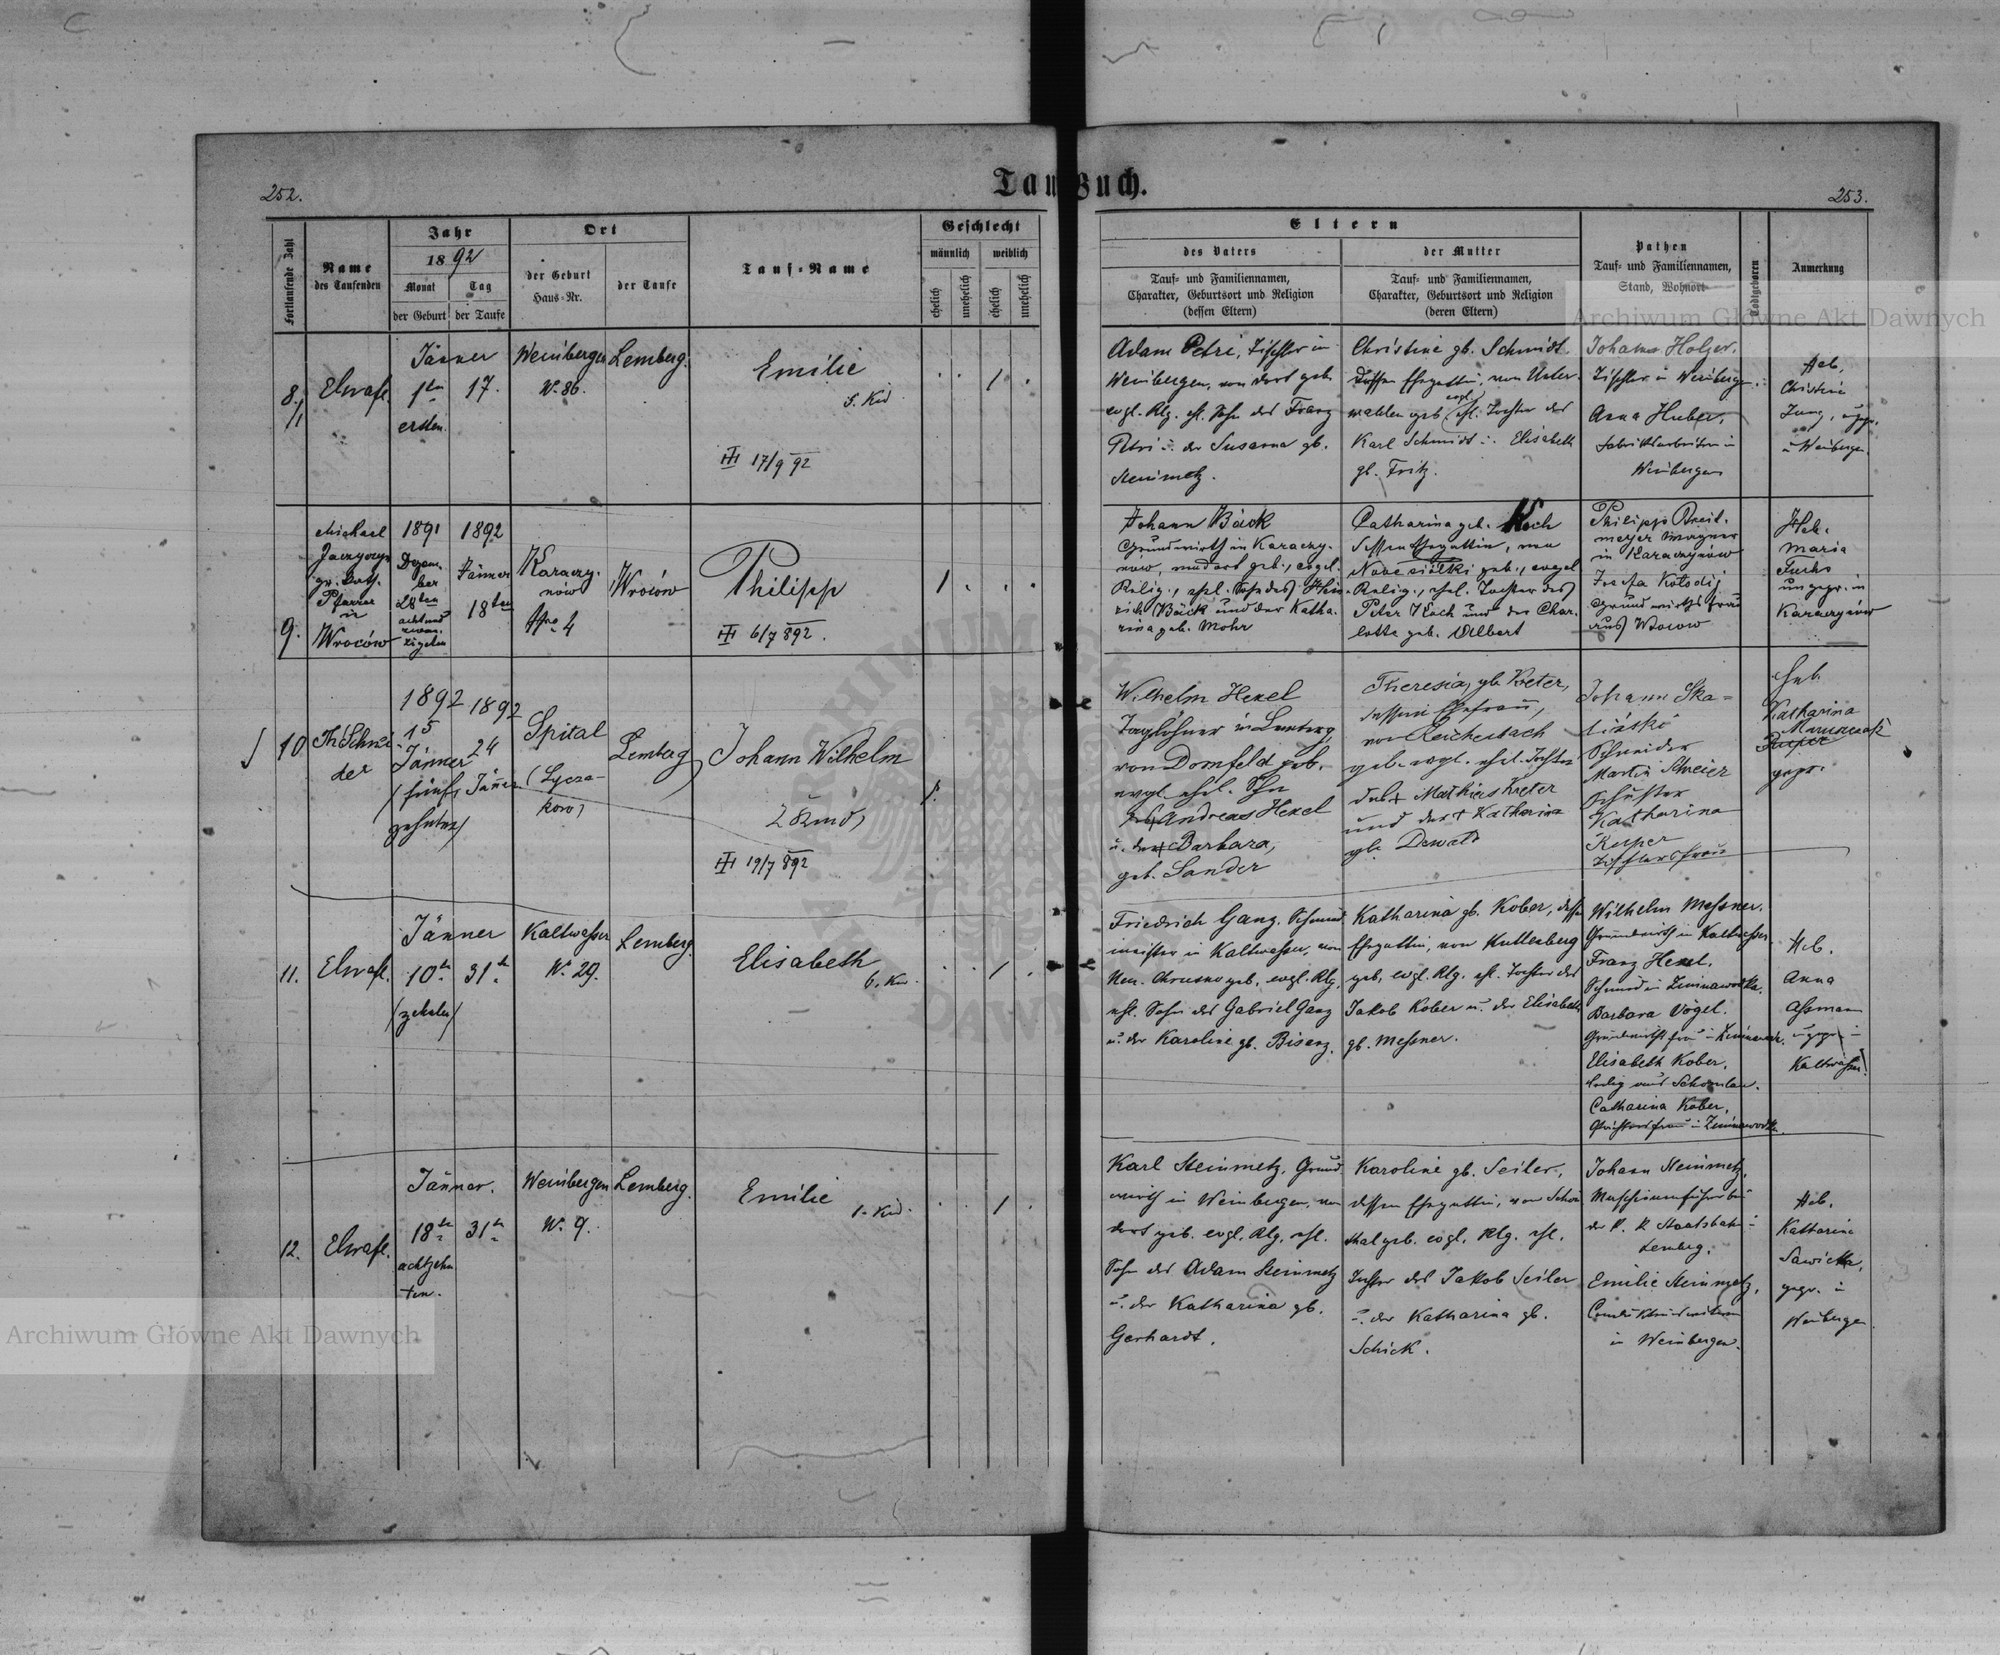 252.
Taufbuch.
253.
Fortlaufende Zahl
Name
des Taufenden
Jahr
1892
Monat
der Geburt
Tag
der Taufe
Ort
der Geburt
Haus-Nr.
der Taufe
Tauf-Name
Geschlecht
männlich
weiblich
ehelich
unehelich
ehelich
unehelich
Eltern
des Vaters
Tauf- und Familiennamen,
Charakter, Geburtsort und Religion
(dessen Eltern)
der Mutter
Tauf- und Familiennamen,
Charakter, Geburtsort und Religion
(deren Eltern)
Pathen
Tauf- und Familiennamen,
Stand, Wohnort
Todtgeboren
Anmerkung
Archiwum Główne Akt Dawnych
8.
Jänner
1ten
ersten
17.
Weinbergen
Nr. 86.
Lemberg.
Emilie
5. Kind
III 17/9 92
Adam Petri, Tischler in
Weinbergen, von dort geb.
evgl. Rlg. ehl. Sohn des Franz
Petri u. der Susanna gb.
Steinmetz.
Christine gb. Schmidt.
dessen Ehegattin, von Unter-
walden geb. evgl. ehl. Tochter des
Karl Schmidt u. Elisabeth
gb. Fritz.
Johann Holzer.
Tischler in Weinbergen.
Anna Huber,
Fabriksarbeiterin in
Weinbergen
Heb.
Christine
Jung, ungepr.
in Weinbergen
9.
Michael
gr. kath.
Pfarrer
in
Wroców
1891
Dezem-
ber
28ten
acht und
zwan-
zigsten
1892
Jänner
18ten
Karaczy-
nów
Nro 4
Wroców
Philipp
III 6/7 892.
Johann Bäck
Grundwirth in Karaczy-
nów, und dort geb., evgel.
Relig., ehel. Sohn des Hein-
rich Bäck und der Katha-
rina geb. Mohr
Catharina geb. Koch
dessen Ehegattin, von
Nowesiółki geb., evgel
Relig., ehel. Tochter des
Peter Koch und der Char-
lotte geb. Albert
Philipp Breit-
meyer Wagner
in Karaczynów
Josefa Kołodij
Grundwirths frau
aus Wrocow
Heb.
Maria
Fuchs
ungepr. in
Karaczynów
10
Th Schnei-
der
1892
15
Jänner
(fünf-
zehnten)
1892
24
Jänner
Spital
(Lycza-
kow)
Lemberg
Johann Wilhelm
2 Kind
III 19/7 892
Wilhelm Hexel
Taglöhner in Lemberg,
von Dornfeld geb.
evgl. ehel. Sohn
des Andreas Hexel
u. der Barbara,
geb. Sander
Theresia, gb. Kreter,
dessen Ehefrau,
von Reichenbach
geb. evgl. ehel. Tochter
des Mathias Kreter
und der Katharina
gb. Dewald
Johann Ska-
Schneider
Martin Schreier
Schuster
Katharina
Kuper
Tischlersfrau
Heb.
Katharina
gepr.
11.
Jänner
10t.
(zehnten)
31t.
Kaltwasser
Nr. 29.
Lemberg.
Elisabeth
6. Kind
Friedrich Ganz. Schmied-
meister in Kaltwasser, von
Neu-Chrusno geb. evgl. Rlg.
ehl. Sohn des Gabriel Ganz
u. der Karoline gb. Bisanz.
Katharina gb. Kober, dessen
Ehegattin, von Kuttenberg
geb. evgl. Rlg. ehl. Tochter des
Jakob Kober u. der Elisabeth
gb. Messner.
Wilhelm Messner.
Grundwirth in Kaltwasser
Franz Hexel.
Schmied in Zimnawodka.
Barbara Vogel.
Elisabeth Kober.
ledig aus
Catharina Kober,
Heb.
Anna
Assmann
ungepr. in
Kaltwasser.
12.
Jänner.
18t.
achtzehn
ten.
31t.
Weinbergen
Nr. 9.
Lemberg.
Emilie
1. Kind.
Karl Steinmetz, Grund-
wirth in Weinbergen, von
dort geb. evgl. Rlg. ehl.
Sohn des Adam Steinmetz
u. der Katharina gb.
Gerhardt.
Karoline gb. Seiler.
dessen Ehegattin, von Schön-
thal geb. evgl. Rlg. ehl.
Tochter des Jakob Seiler
u. der Katharina gb.
Schick.
Johann Steinmetz,
Maschinenführer bei
der k. k. Staatsbahn in
Lemberg.
Emilie Steinmetz,
in Weinbergen.
Heb.
Katharina
Sawicka,
gepr. in
Weinbergen.
Archiwum Główne Akt Dawnych